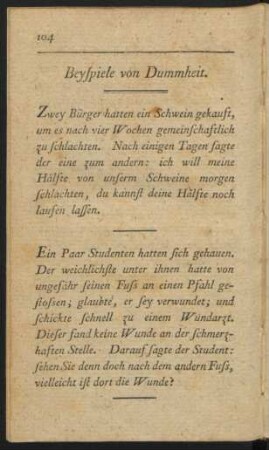 104
Beyſpiele von Dummheit.
Zwey Bürger hatten ein Schwein gekauft,
um es nach vier Wochen gemeinſchaftlich
zu ſchlachten. Nach einigen Tagen ſagte
der eine zum andern: ich will meine
Hälfte von unſerm Schweine morgen
ſchlachten, du kannſt deine Hälfte noch
laufen laſſen.
Ein Paar Studenten hatten ſich gehauen.
Der weichlichſte unter ihnen hatte von
ungefähr ſeinen Fuſs an einen Pfahl ge-
ſtoſsen; glaubte, er ſey verwundet; und
ſchickte ſchnell zu einem Wundarzt.
Dieſer fand keine Wunde an der ſchmerz-
haften Stelle. Darauf ſagte der Student:
ſehen Sie denn doch nach dem andern Fuſs,
vielleicht iſt dort die Wunde?